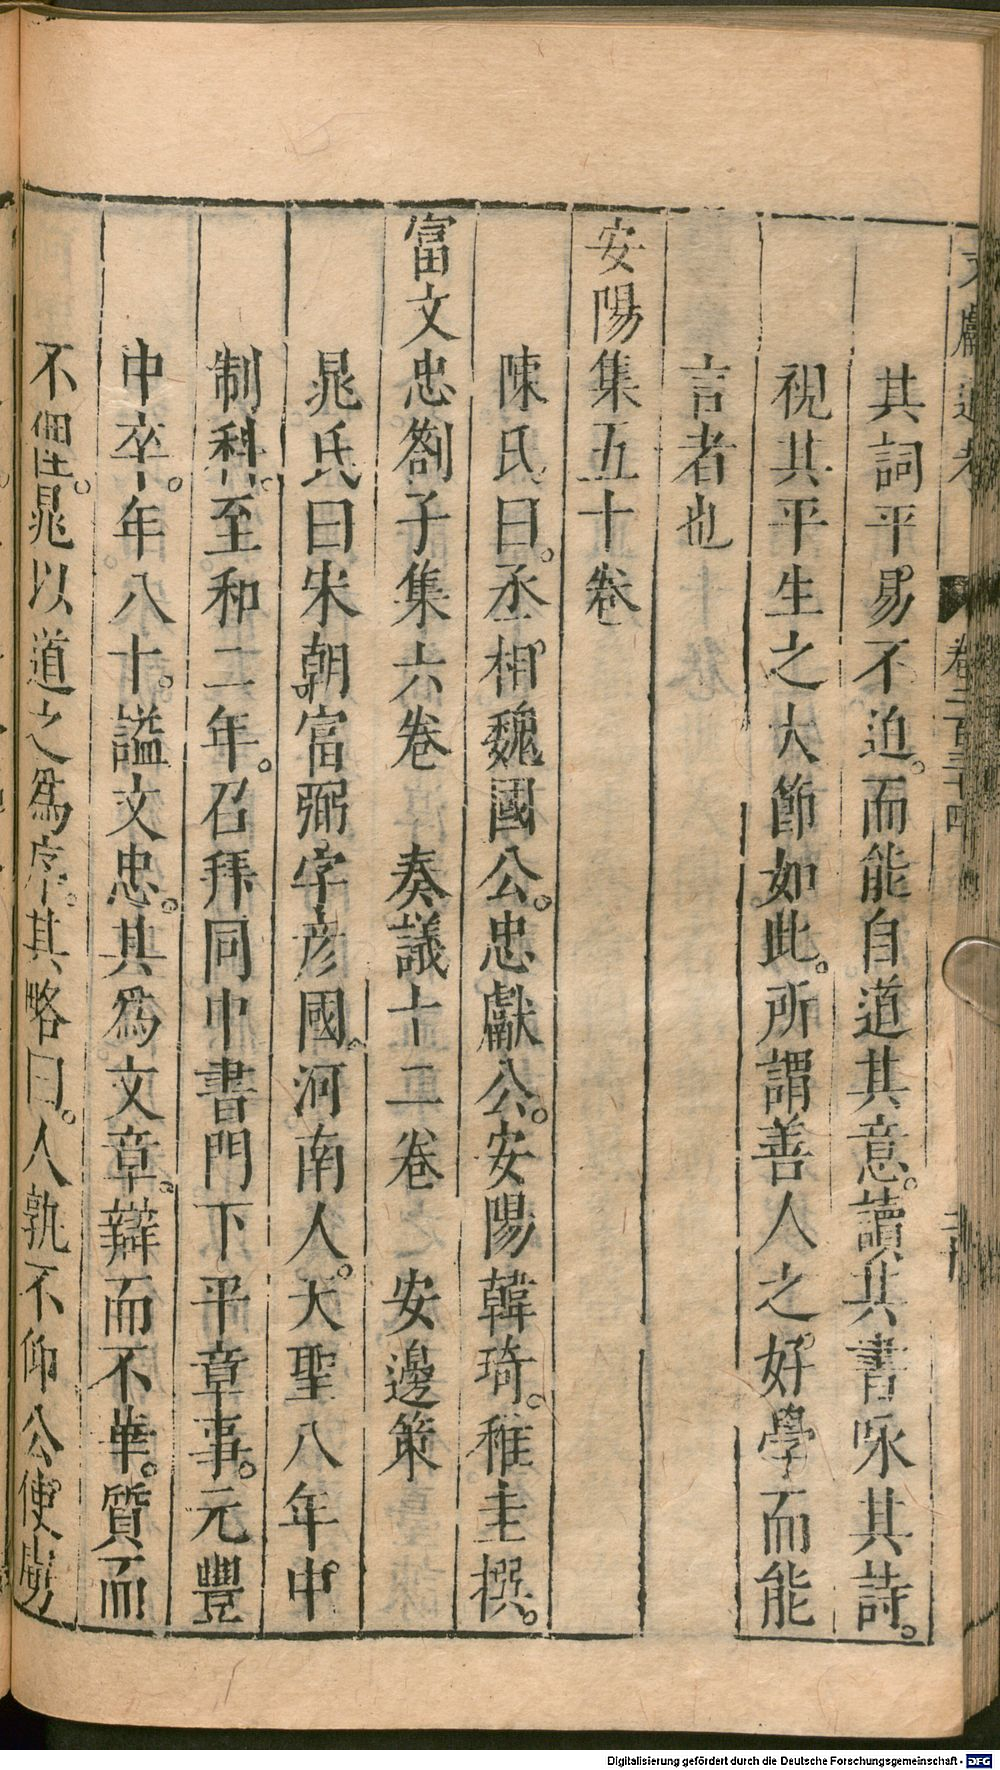 其詞平易不迫而能自道其意。讀其書咏其詩。
視其平生之大節如此。所謂善人之好學而能
言者也
安陽集五十卷
陳氏曰。丞相魏國公。忠獻公。安陽韓琦。稚圭撰。
富文忠劄子集六卷 奏議十二卷 安邊策
晁氏曰宋朝富弼字彥國。河南人。天聖八年中
制科。至和二年。召拜同中書門下平章事。元豐
中卒。年八十。謚文忠。其為文章。辯而不華。質而
不俚。晁以道之為序。其略曰。人孰不仰公使虜
Digitalisierung gefördert durch die Deutsche Forschungsgemeinschaft - DFG